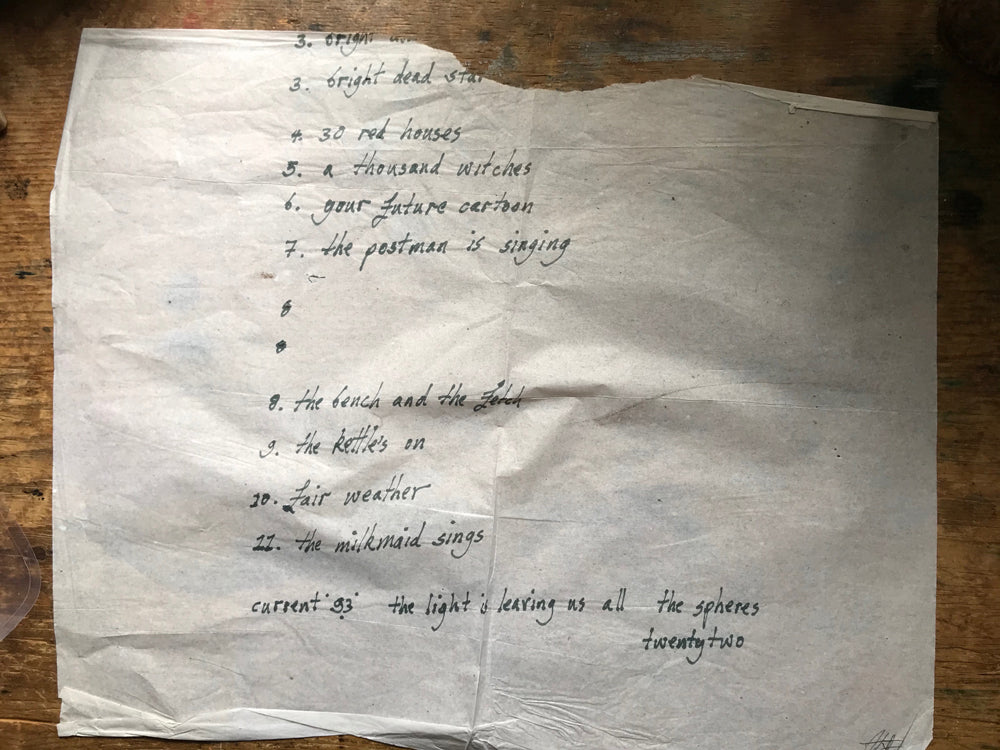 3. bright
3. bright dead star
4. 30 red houses
5. a thousand witches
6. your future cartoon
7. the postman is singing
8
8
8. the bench and the fetch
9. the kettle's on
10. fair weather
11. the milkmaid sings
current '93' the light is leaving us all the spheres
twentytwo